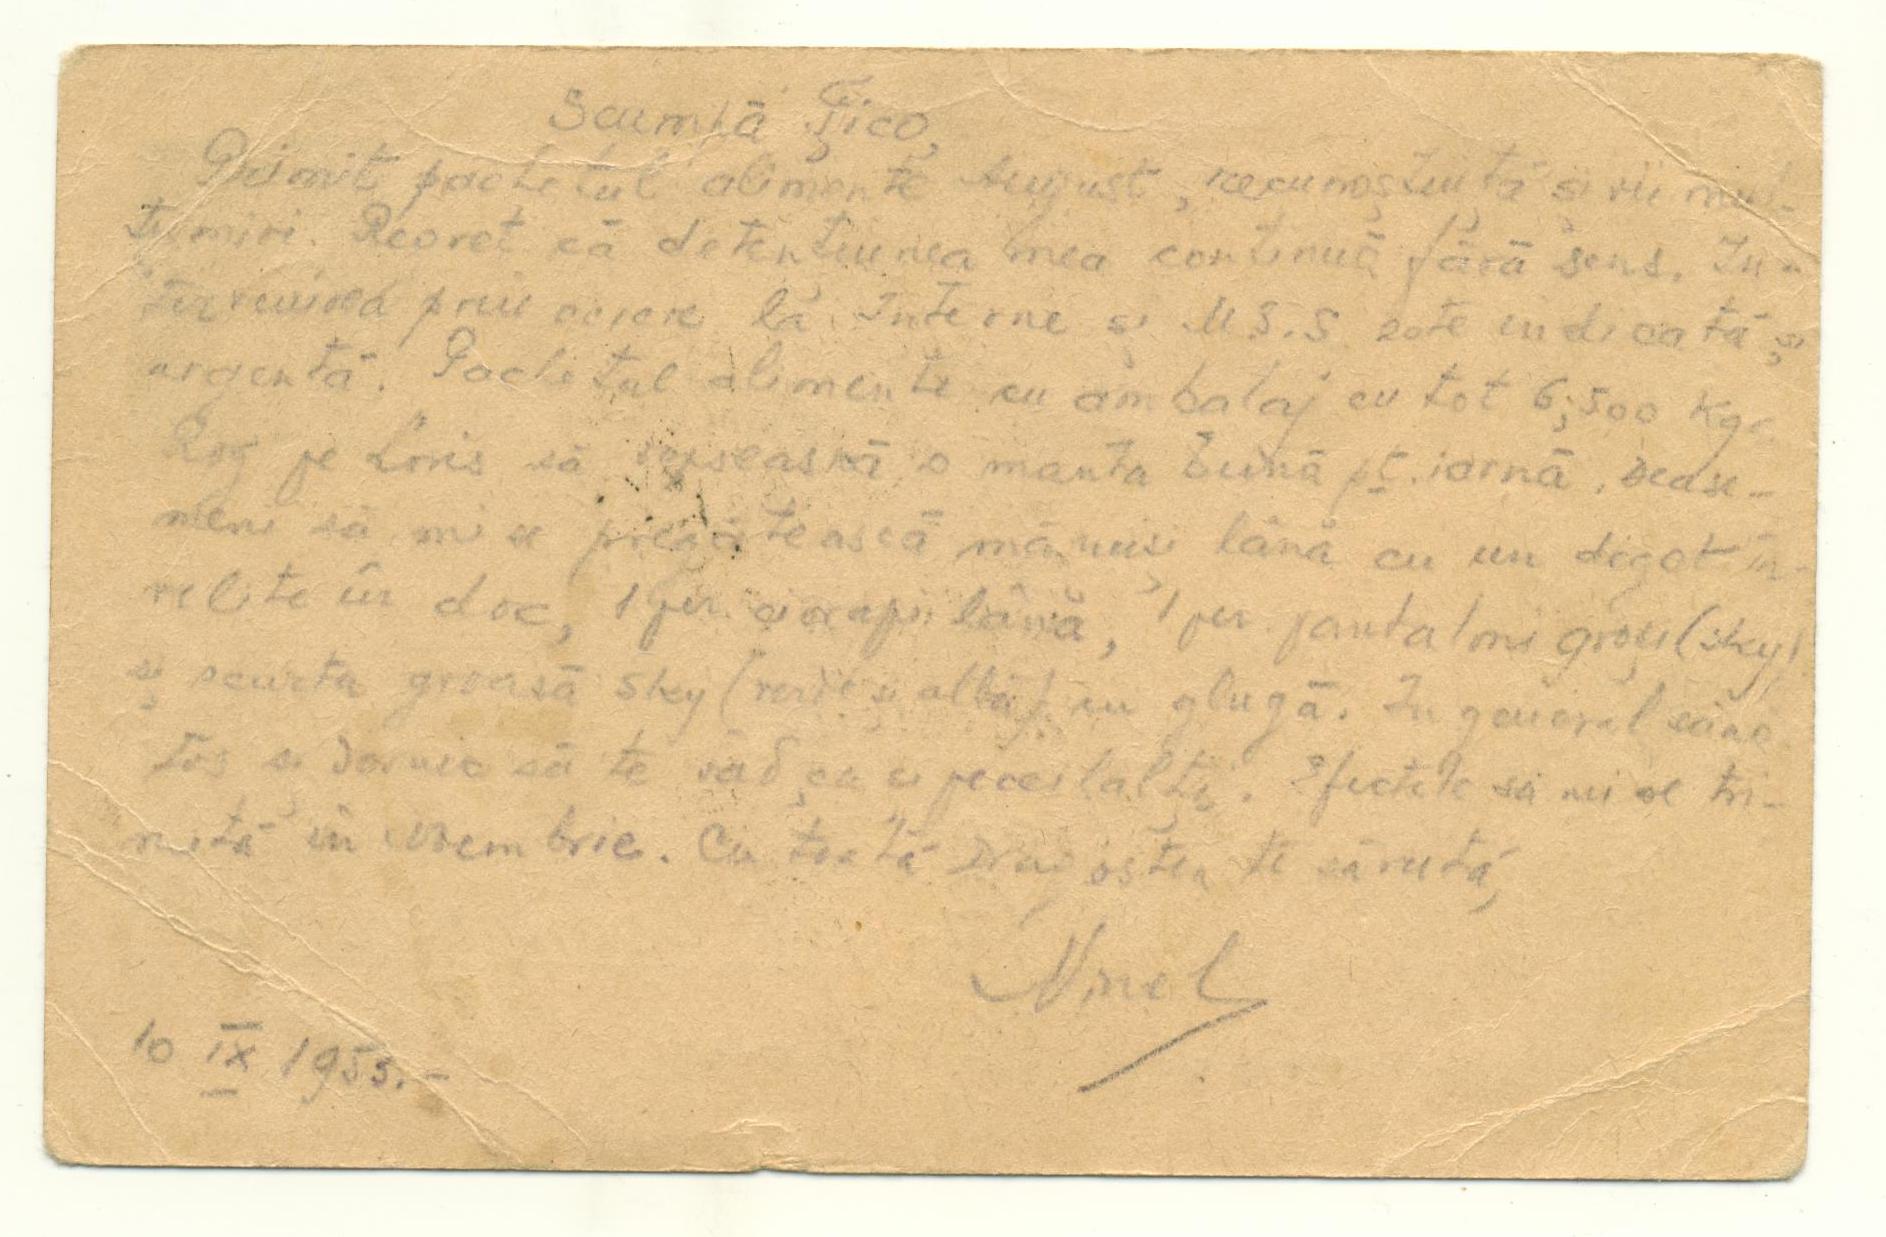 Scumpă Țico,
Primit pachetul alimente August, recunoștință și vii mul-
țumiri. Regret că detențiunea mea continuă fără sens. In-
tervenirea prin cerere la Interne și M.S.S. este indicată și
urgentă. Pachetul alimente cu ambalaj cu tot 6,500 Kgr.
Rog pe Loris să găsească o manta bună pt. iarnă. Dease-
meni să mi se pregătească mănuși lână cu un deget în-
velite în doc, 1 per. ciorapi lână, 1 per. pantaloni groși (sky)
și scurta groasă sky (verde și albă) cu glugă. In general sănă-
tos și dornic să te văd ca și pe ceilalți. Efectele să mi se tri-
mită în Noembrie. Cu toată dragostea te sărută,
Ninel
10 IX 1953.-